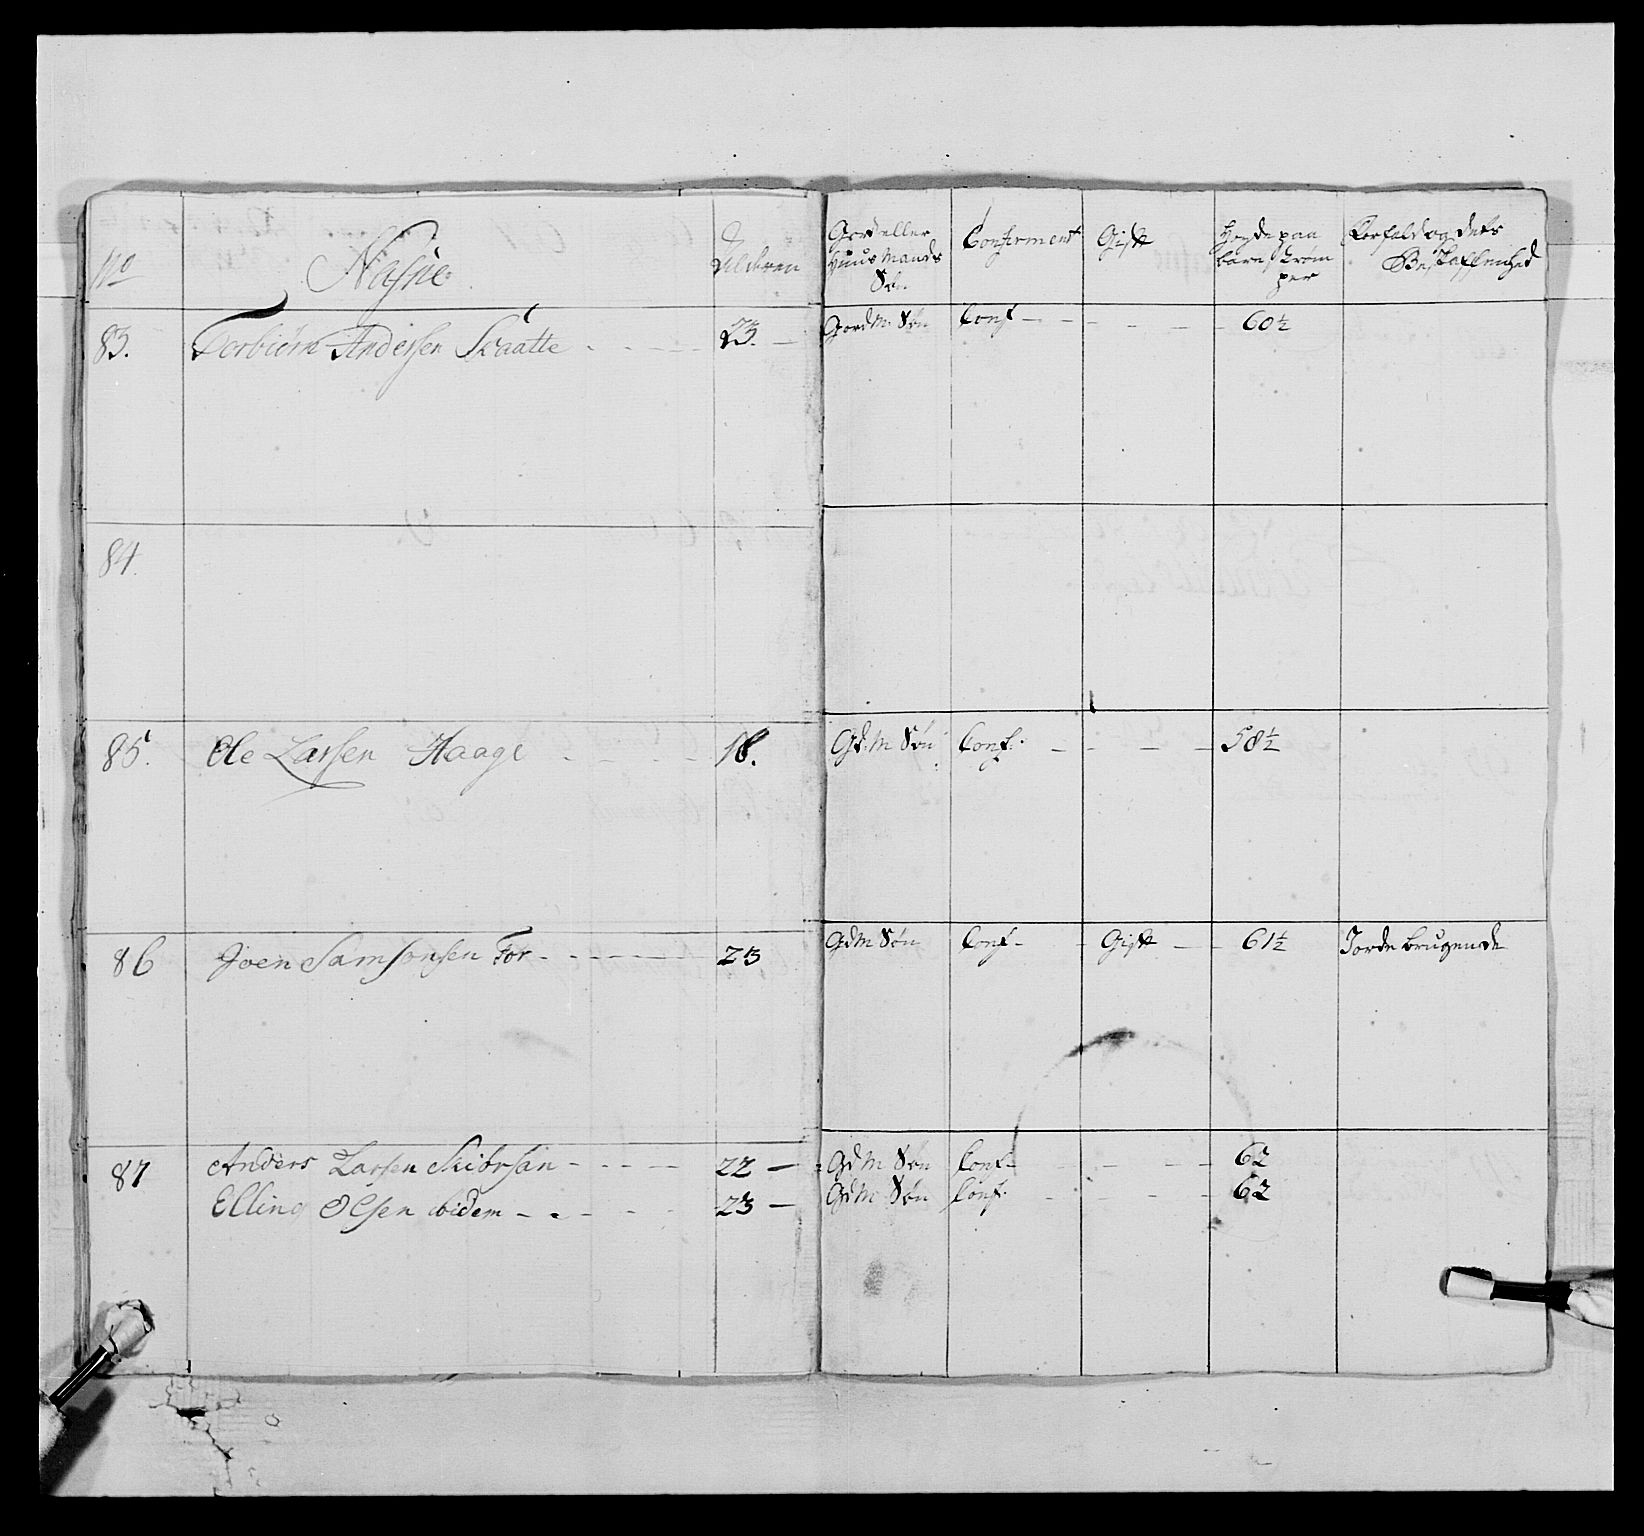 No Nafne Alderen Gord eller Huus Mands Søn Confirmeret Gift Høyde paa barestrømper Forfald og dets Beskaffenhed
83. Torbiörn Andersen Skaatte - - - - 23. - GordM. Søn Conf - - - - - 60½
84.
85. Ole Larsen Haage - - - - 18. Gd:M Søn Conf: - - - - 58½
86 Joen Samsonsen For - - - - - - 23 GdM Søn Conf - - Gift - - 61½ Jordebrugende
87 Anders Larsen Skibrsan - - - - - 22 - GdM Søn Conf - - - - - 62
Elling Olsen ibidem - - - - - 23 - GdM Søn Conf: - - - - - 62